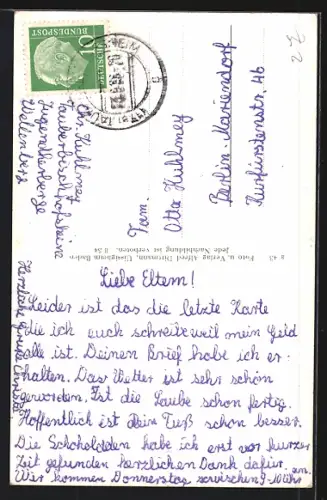 27
DEUTSCHE
BUNDESPOST
10
HEIM
Chr. Kuhlmey
Tauberbischofsheim
Jugendherberge
Wellenberg
Fam.
Otto Kuhlmey
Berlin-Mariendorf
Kurfürstenstr. 46
Foto u. Verlag Alfred
Jede Nachbildung ist verboten.
Liebe Eltern!
Leider ist das die letzte Karte
die ich euch schreibe weil mein Geld
alle ist. Deinen Brief habe ich er-
halten. Das Wetter ist sehr schön
geworden. Ist die Laube schon fertig.
Hoffentlich ist dein Fuß schon besser.
Die Schokoladen habe ich erst vor kurzer
Zeit gefunden herzlichen Dank dafür.
Wir kommen Donnerstag zwischen 9-10 Uhr an.
Herzliche Grüße Christa